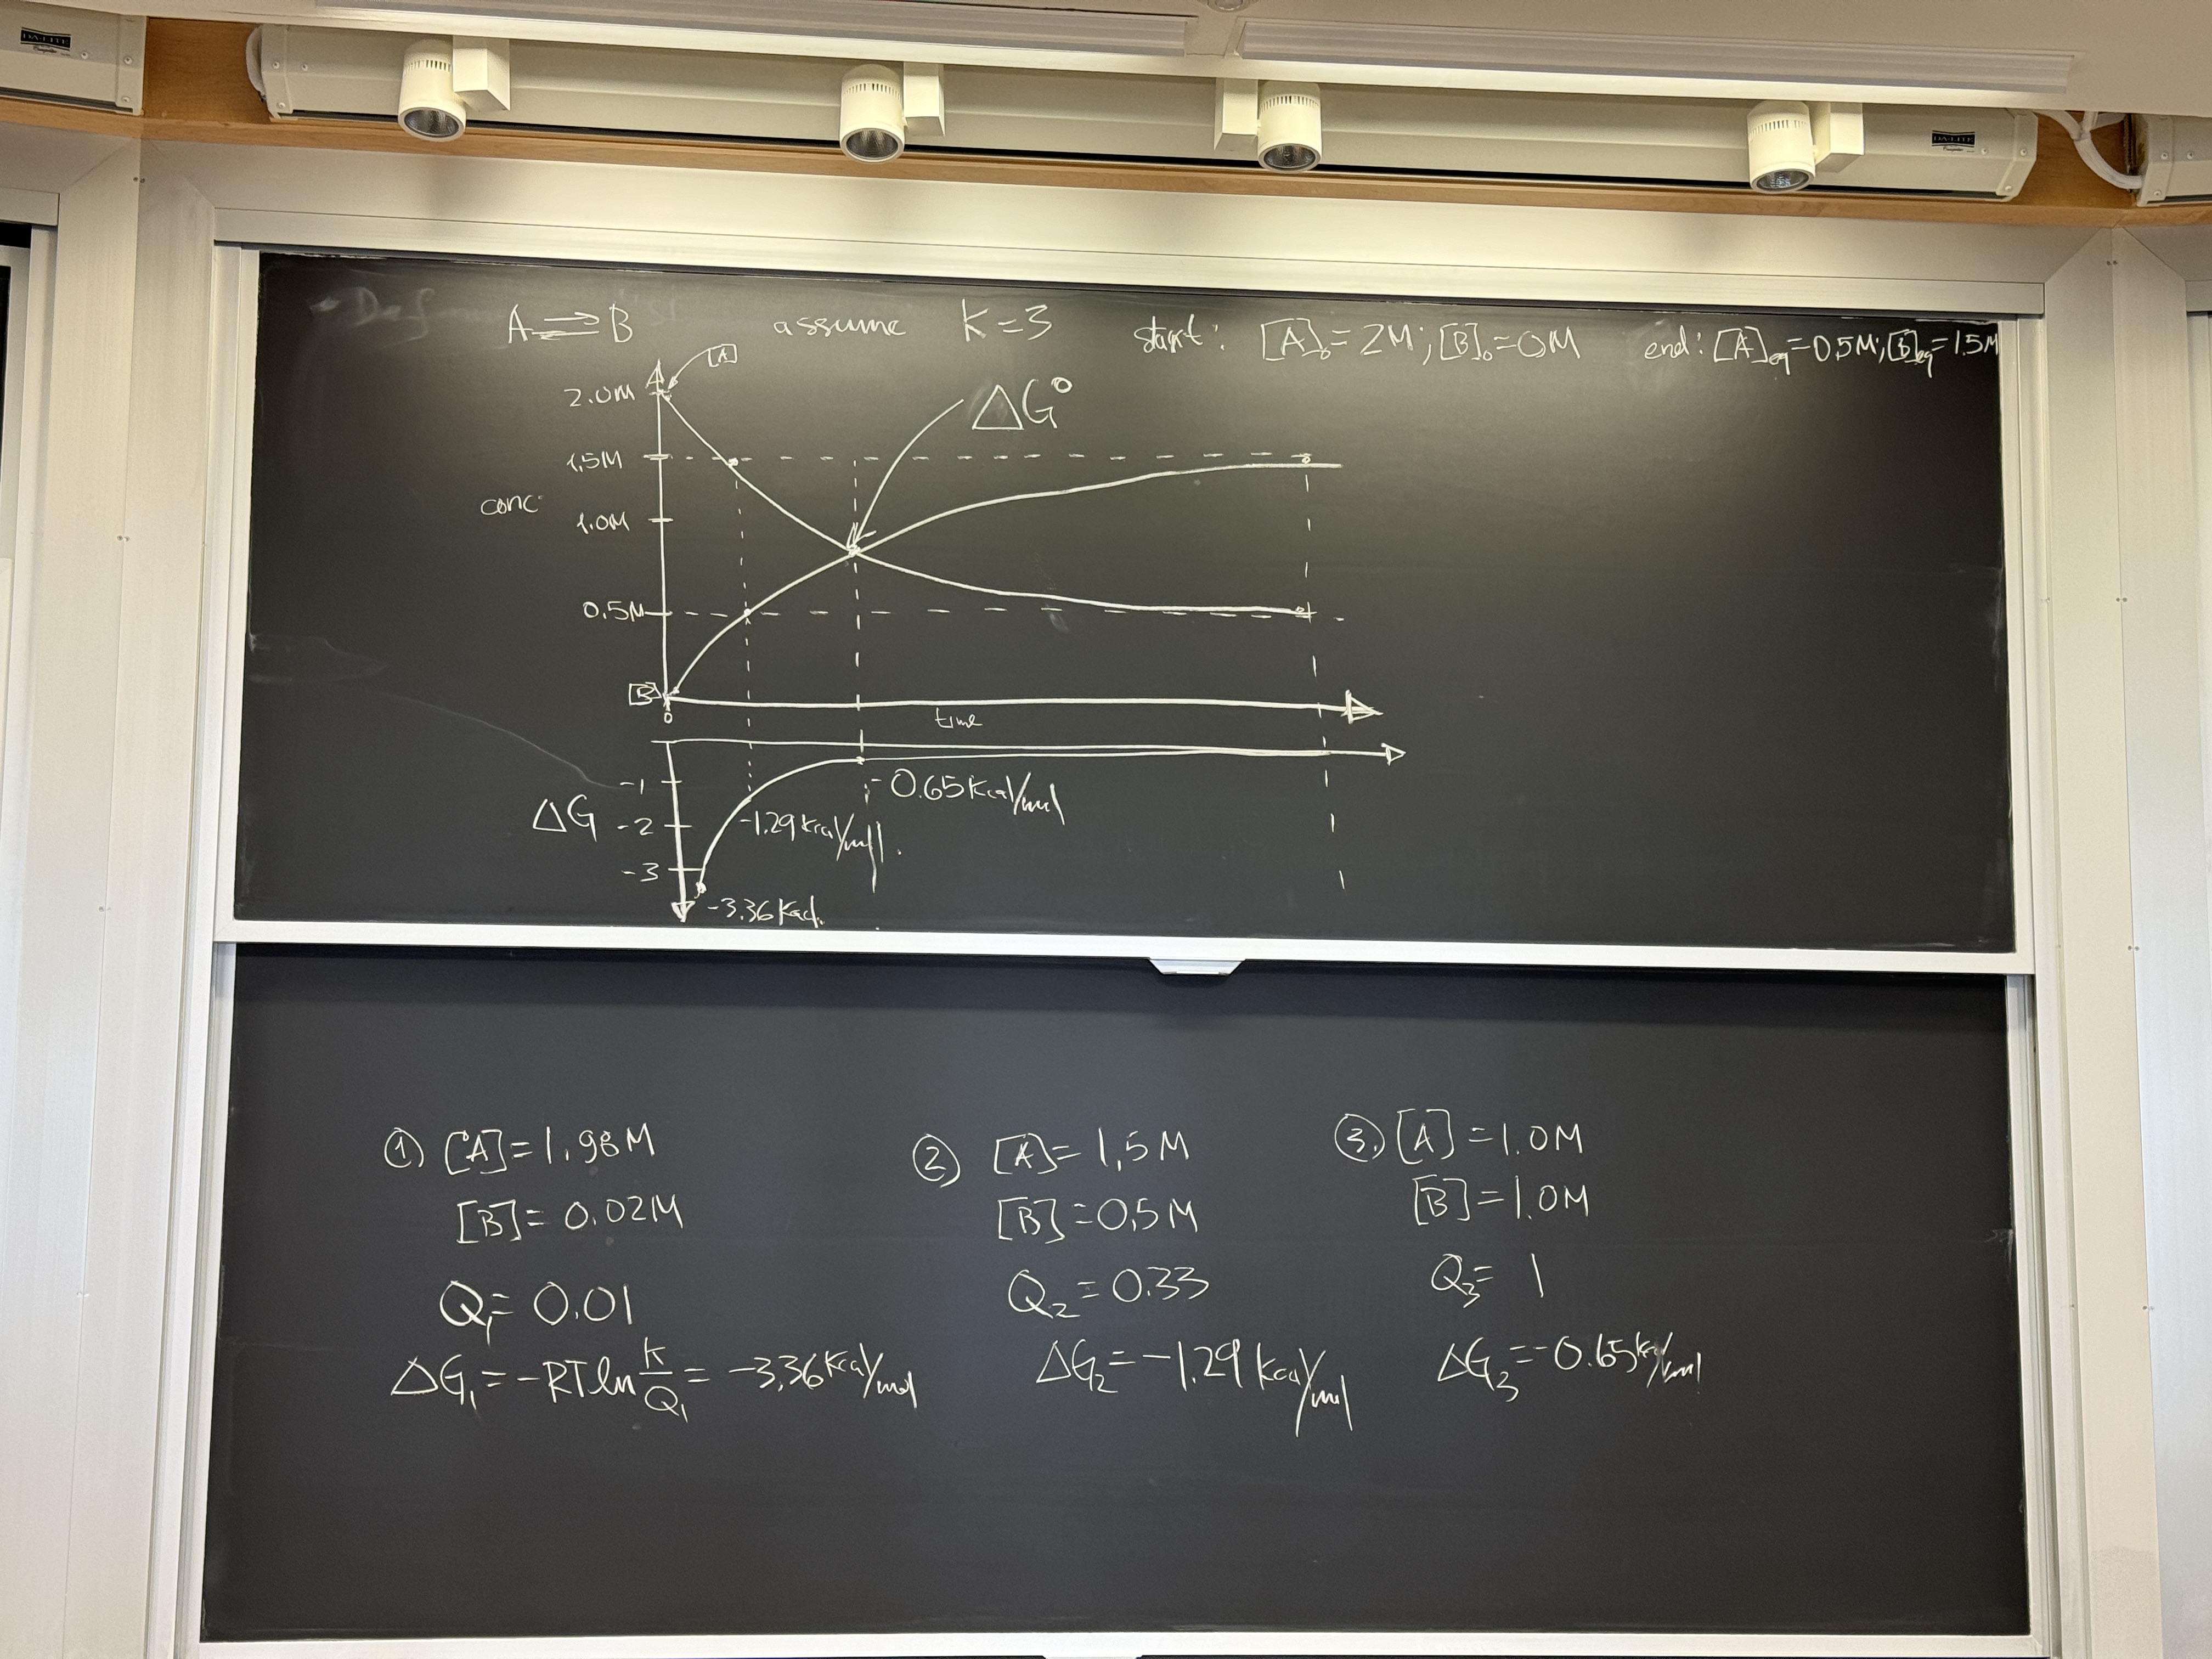 DA-LITE
DA-LITE
A ⇌ B assume K=3 start: [A]₀=2M; [B]₀=0M end: [A]eq=0.5M; [B]eq=1.5M
[A]
2.0M
ΔG°
1.5M
conc
1.0M
0.5M
[B]
0
time
-1
-0.65 Kcal/mol
ΔG
-2
-1.29 kcal/mol
-3
-3.36 Kcal.
① [A]=1.98M
[B]=0.02M
Q₁=0.01
ΔG₁=-RT ln K/Q₁ = -3.36 Kcal/mol
② [A]=1.5M
[B]=0.5M
Q₂=0.33
ΔG₂=-1.29 Kcal/mol
③. [A]=1.0M
[B]=1.0M
Q₃=1
ΔG₃=-0.65 kcal/mol